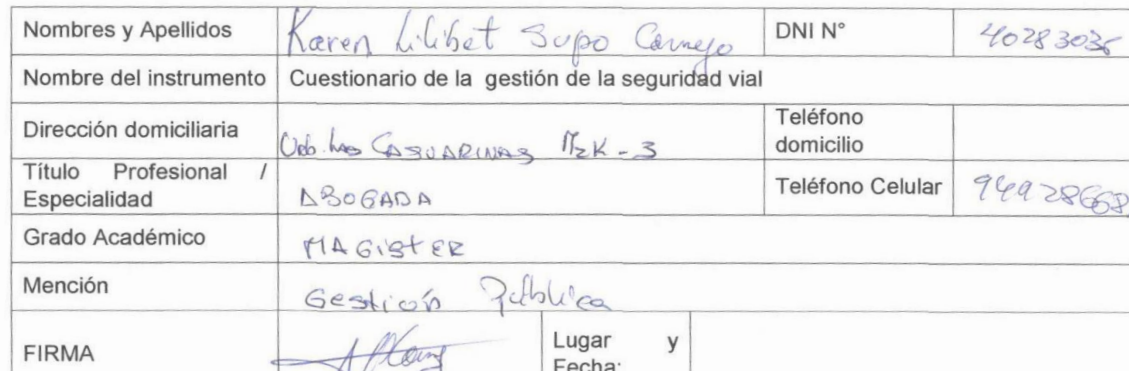 Nombres y Apellidos Karen Lilibet Supo Cornejo DNI N° 40283036
Nombre del instrumento Cuestionario de la gestión de la seguridad vial
Dirección domiciliaria Urb. Las CASUARINAS MzK-3 Teléfono
domicilio
Título Profesional /
Especialidad ABOGADA Teléfono Celular 94928668
Grado Académico MAGISTER
Mención Gestión Pública
FIRMA Lugar y
Fecha: